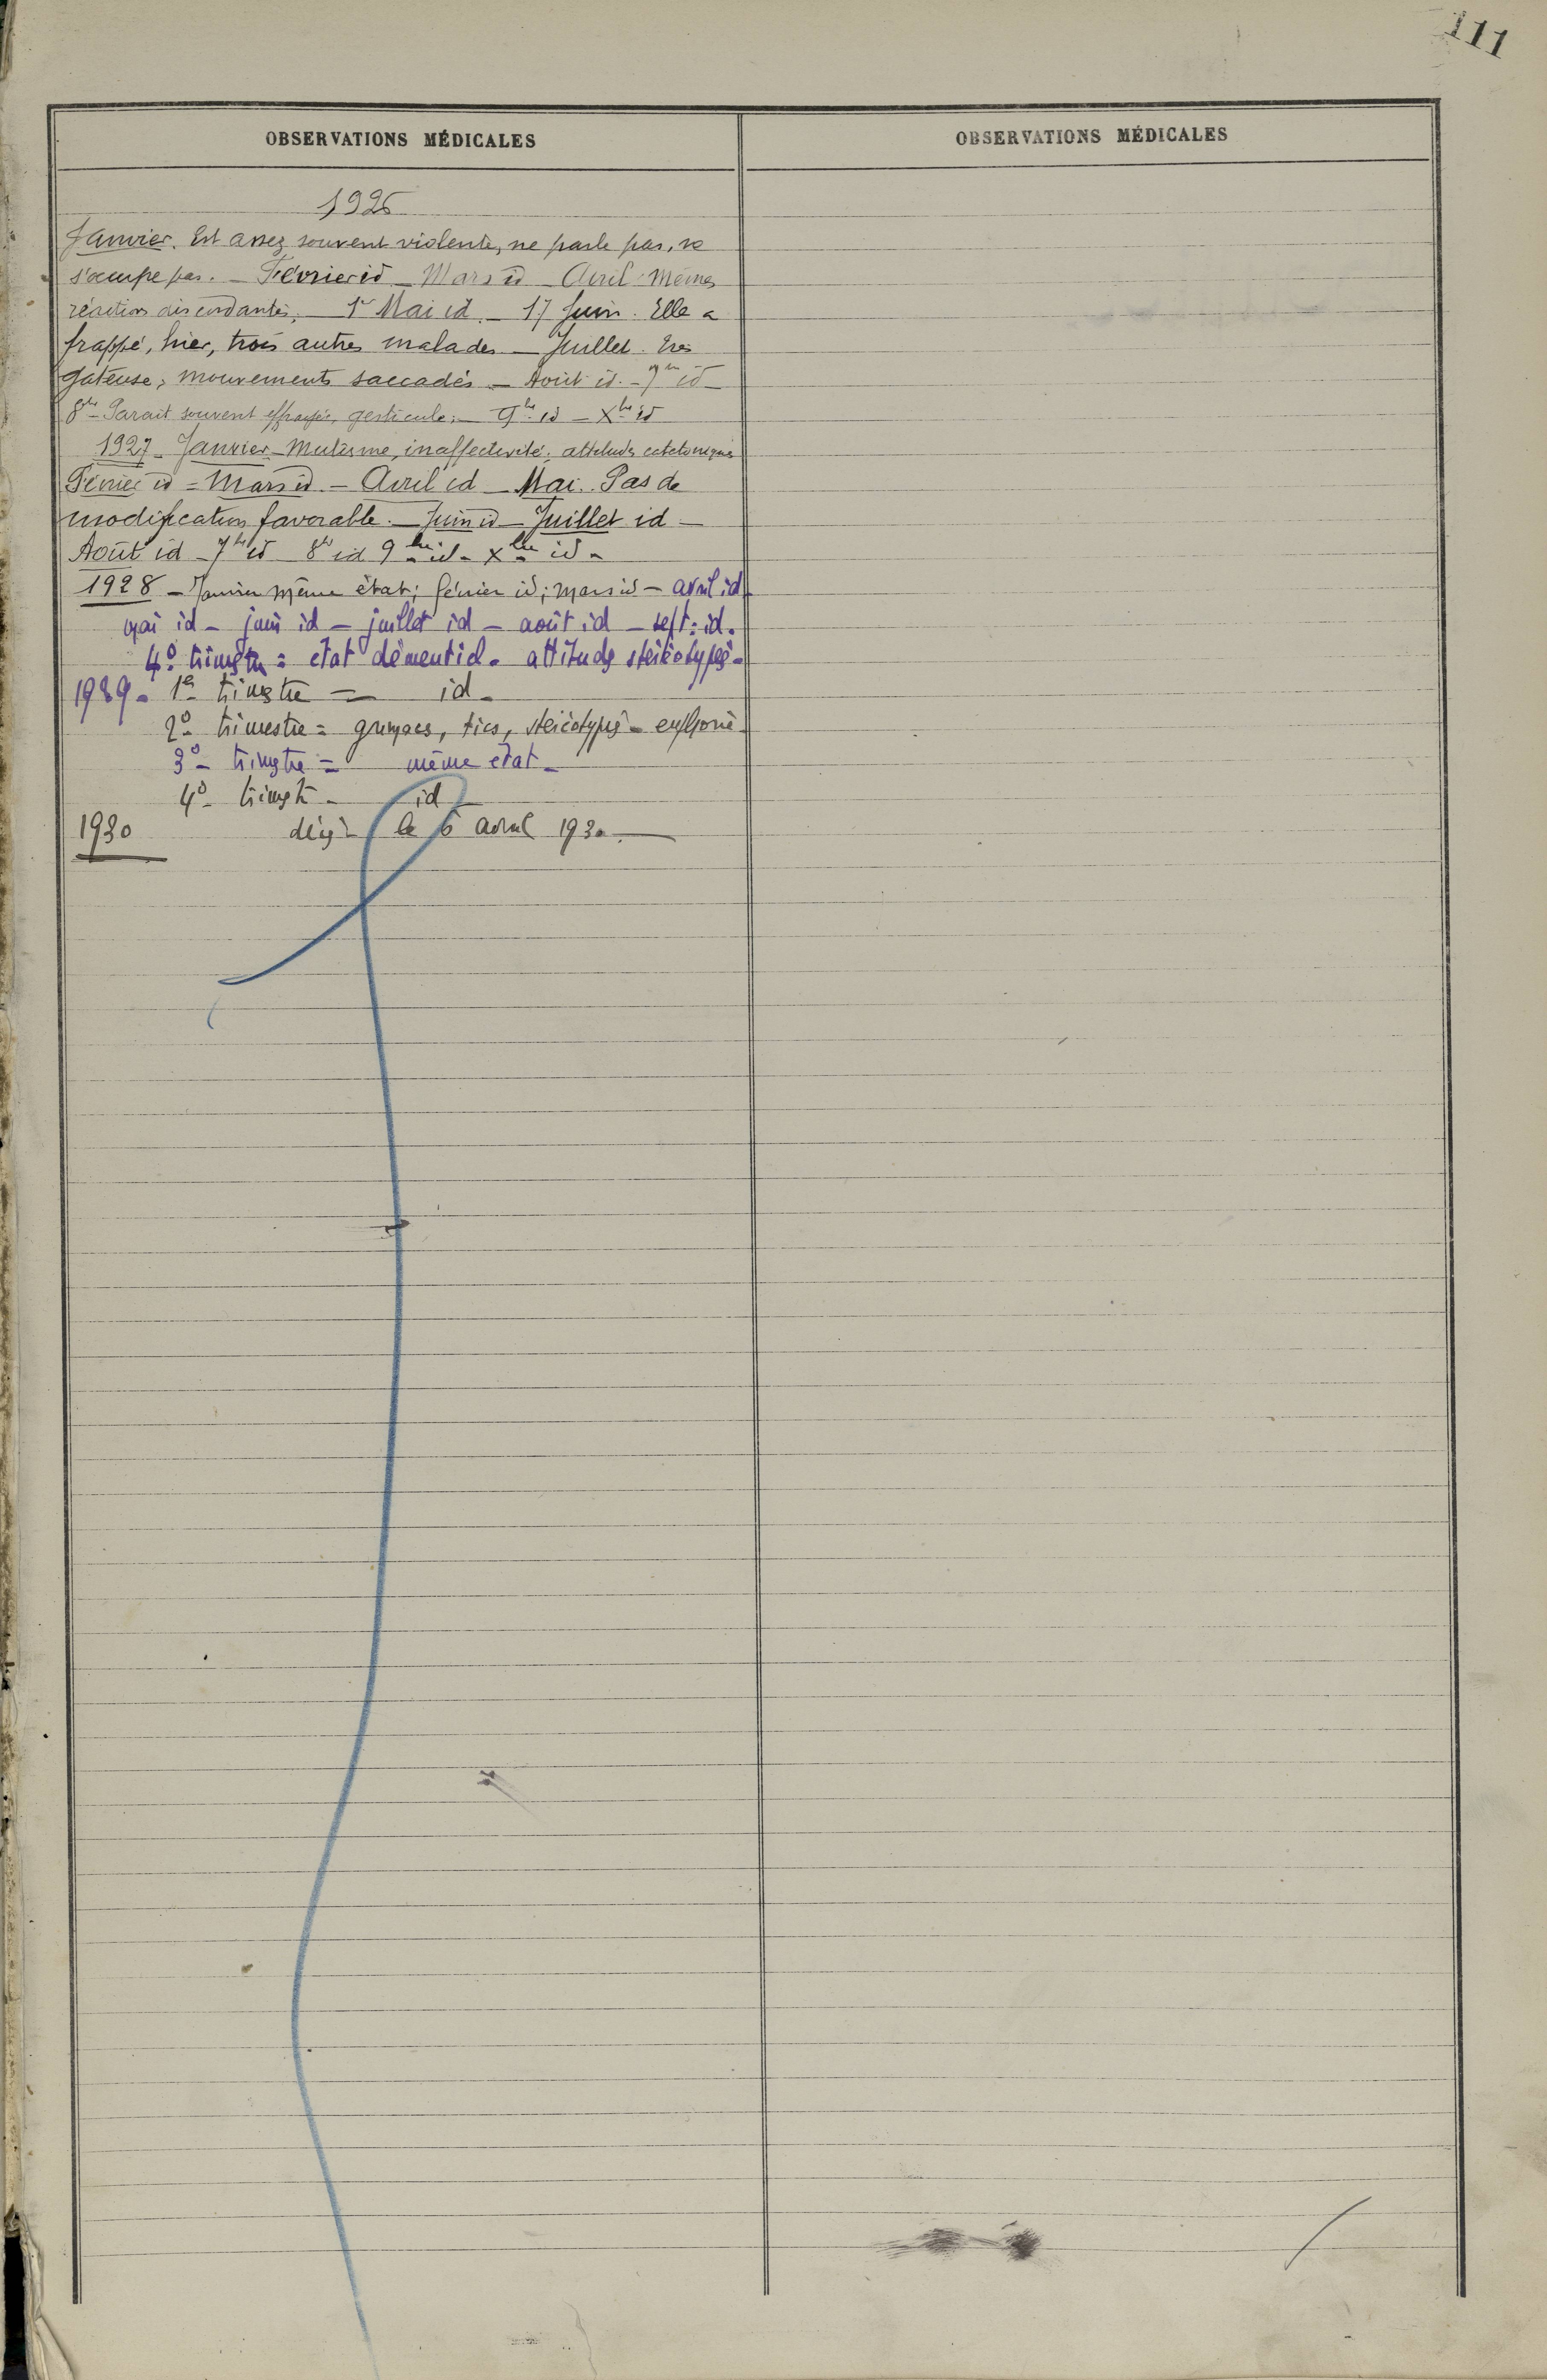 111
OBSERVATIONS MÉDICALES
OBSERVATIONS MÉDICALES
1926
Janvier. Est assez souvent violente, ne parle pas, ne
s'occupe pas. — Février id — Mars id — Avril Mêmes
réactions discordantes. — 1er Mai id. — 17 Juin. Elle a
frappé, hier, trois autres malades — Juillet. Très
gâteuse, mouvements saccadés. — Août id. — 7bre id —
8bre — Parait souvent effrayée, gesticule. — 9bre id — Xbre id
1927 — Janvier — Mutisme, inaffectivité, attitudes catatoniques
Février id = Mars id. — Avril id — Mai. Pas de
modification favorable. — Juin id — Juillet id —
Août id — 7bre id 8bre id 9bre id — Xbre id —
1928 — Janvier même état ; février id ; mars id — avril id
mai id — juin id — juillet id — août id — sept: id.
4° trimestre = état démentiel. attitudes stéréotypées.
1929 — 1er trimestre — id —
2° trimestre = grimaces, tics, stéréotypies —
3° — trimestre = même état —
4° — trimestre — id —
1930 le 6 avril 1930 —